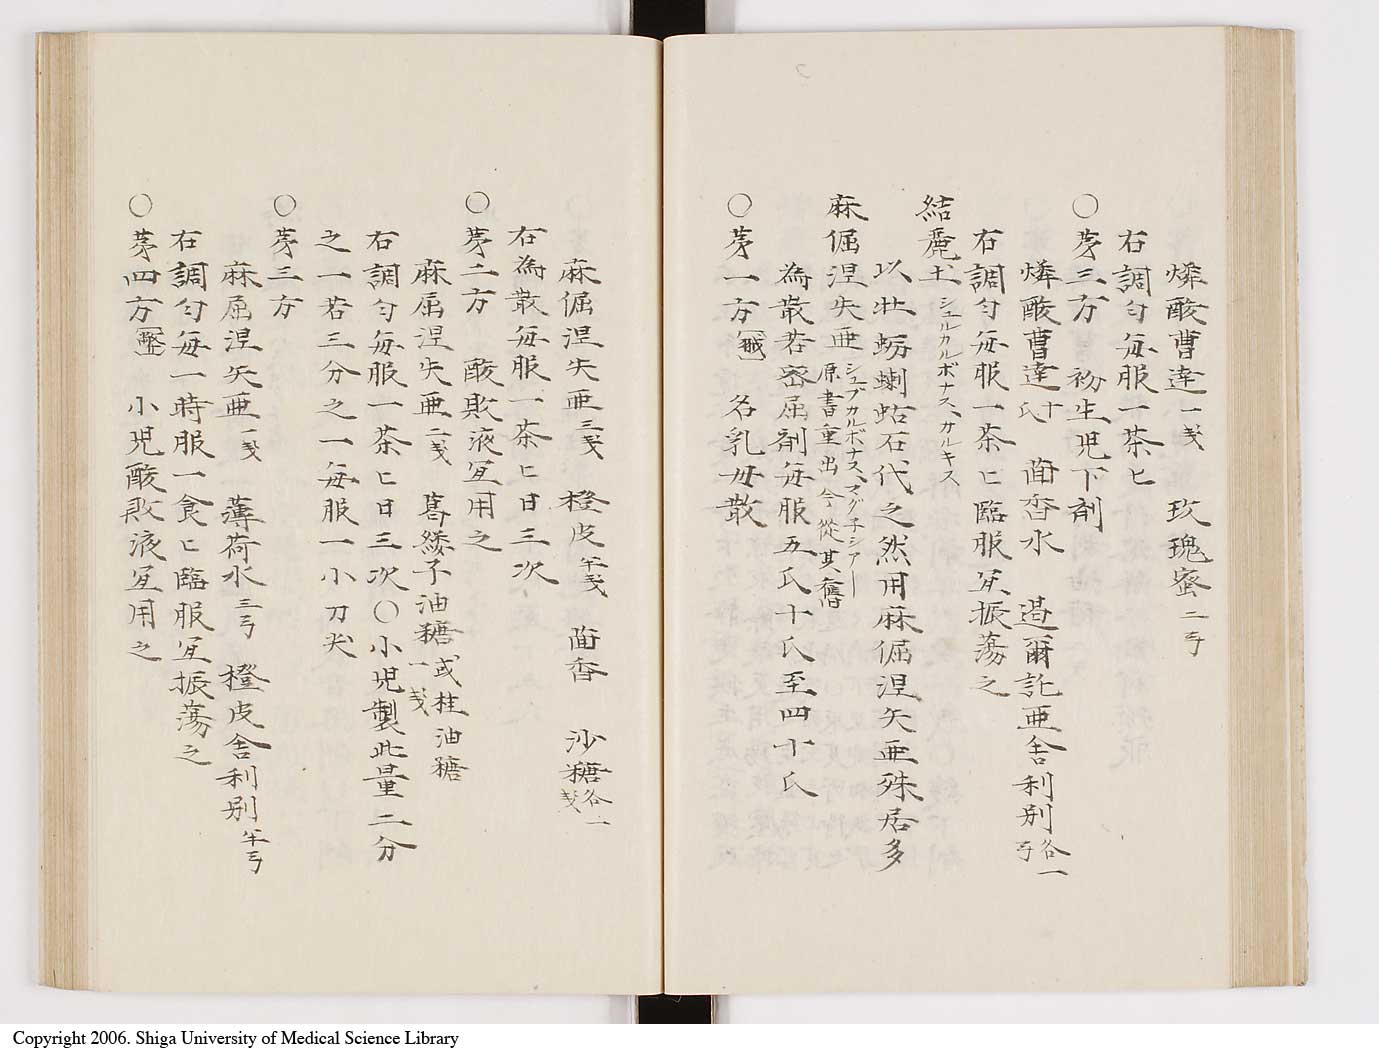 燐酸曹達一戔 玫瑰蜜二弓
右調匀每服一茶匕
○茅三方 初生児下剤
燐酸曹達十氏 茴香水 過爾託亜舎利別各一弓
右調匀每服一茶匕臨服宜振蕩之
結麗土シュルカルボナス、カルキス
以牡蛎蝲蛄石代之然用麻倔涅矢亜殊居多
麻倔涅矢亜シュブカルボナス、マグ子シアー
原書重出今從其舊
為散若密屈剤每服五氏十氏至四十氏
○茅一方 名乳母散
麻倔涅矢亜三戔 橙皮半戔 茴香 沙糖各一戔
右為散每服一茶匕日三次
○茅二方 酸敗液宜用之
麻屈涅矢亜二戔 葛縷子油糖或桂油糖一戔
右調匀每服一茶匕日三次○小児製此量二分
之一若三分之一每服一小刀尖
○茅三方
麻屈涅矢亜一戔 薄荷水三弓 橙皮舎利別半弓
右調匀每一時服一食匕臨服宜振蕩之
○茅四方 小児酸敗液宜用之
Copyright 2006. Shiga University of Medical Science Library